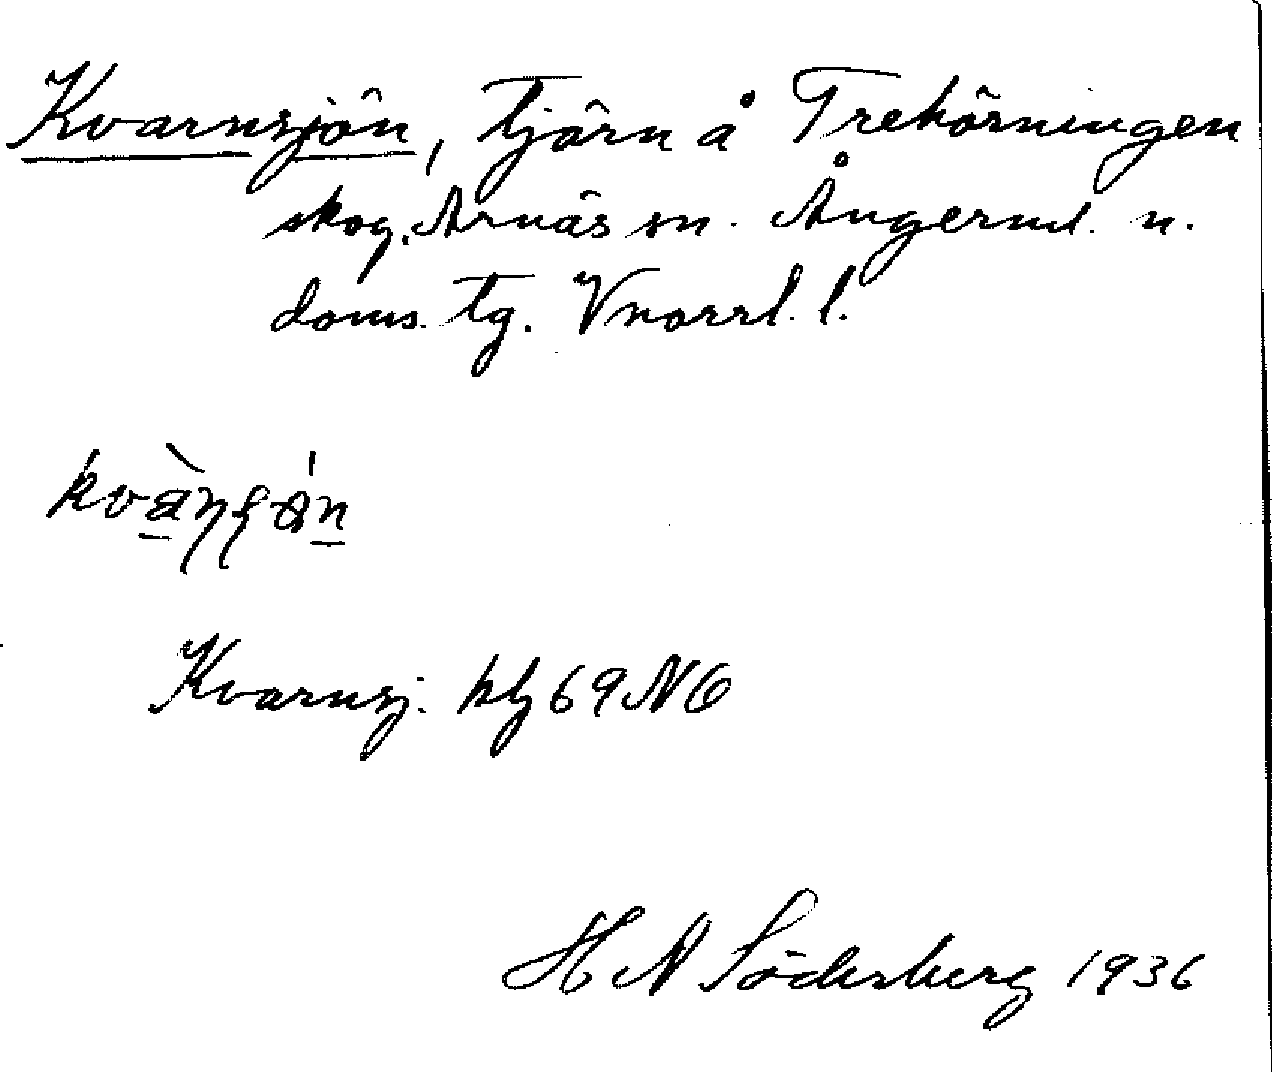 Kvarnsjön, tjärn å Trehörningen
skog, Arnäs sn. Ångerml. n.
doms. tg. Vnorrl. l.
Kvarnsj. kbl 69 NO
H N Söderberg 1936